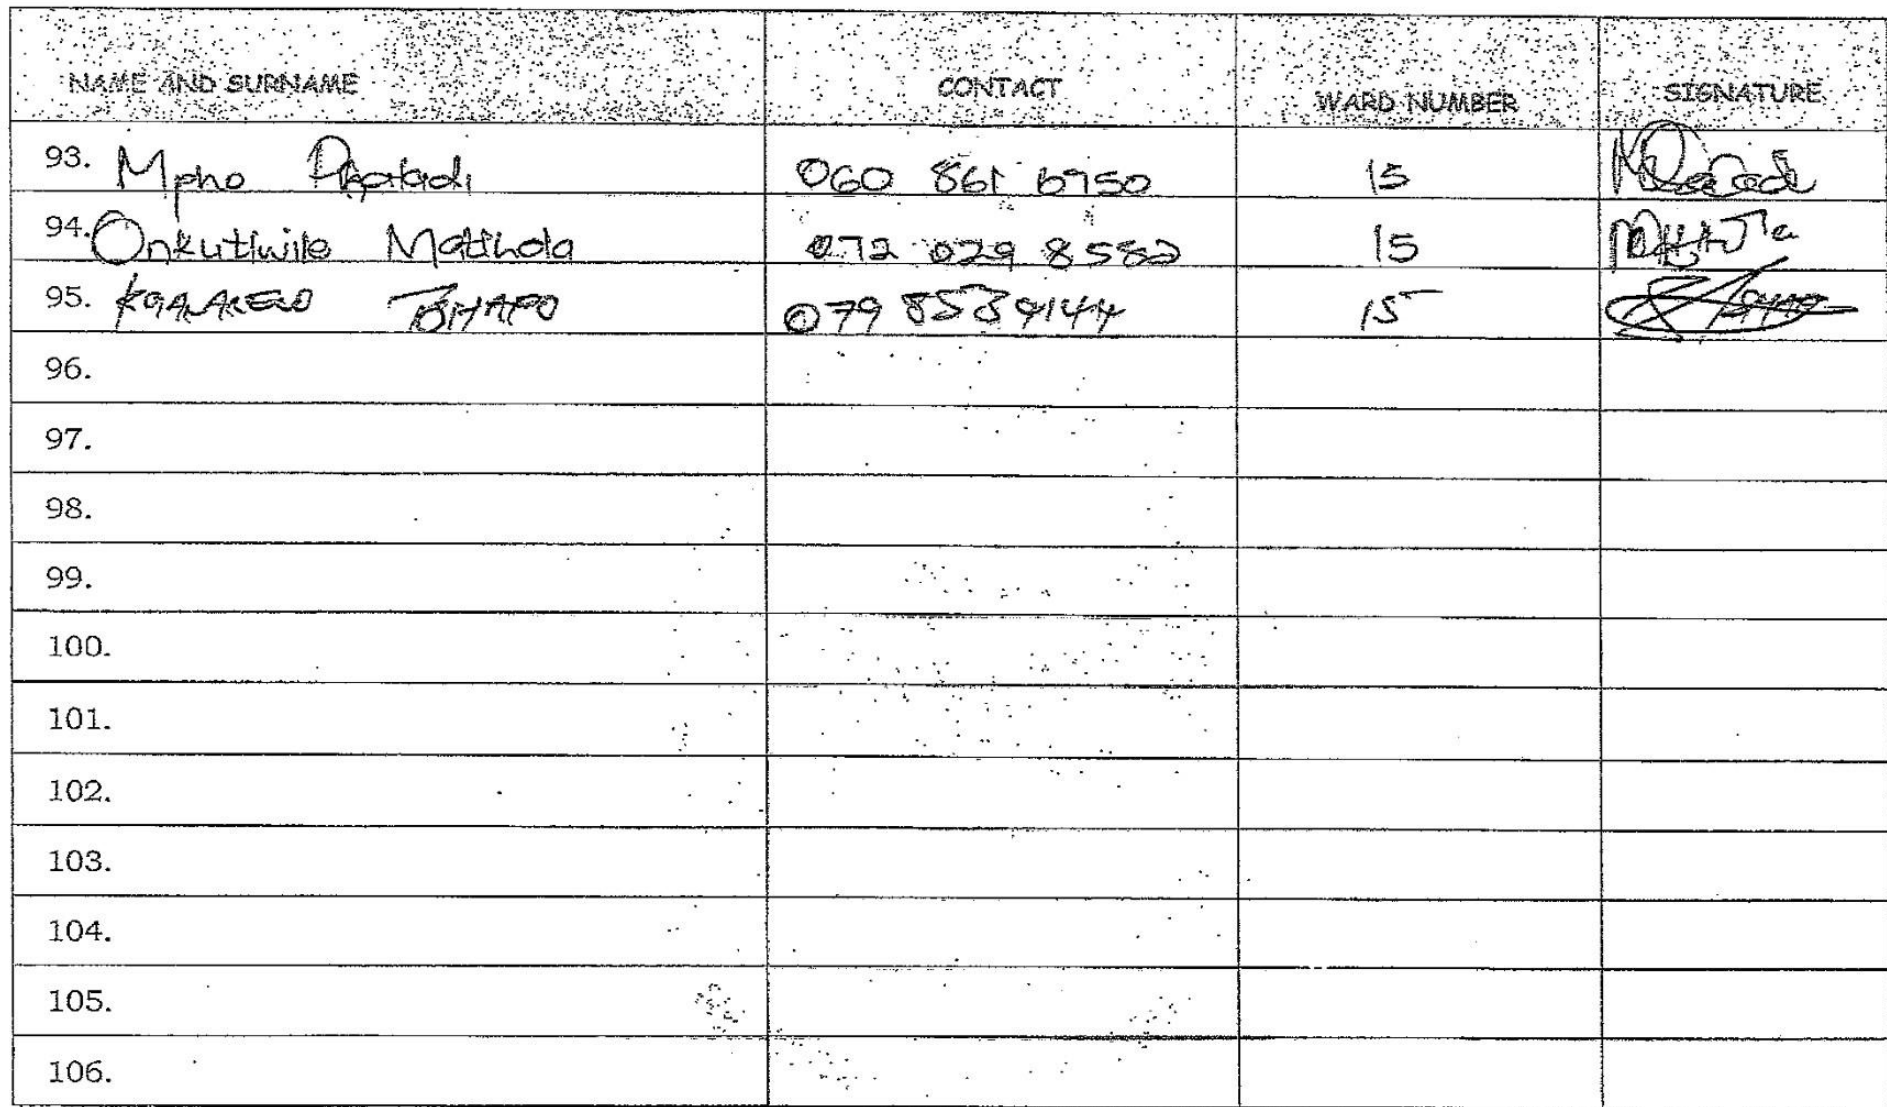 NAME AND SURNAME CONTACT WARD NUMBER SIGNATURE
93. Mpho Phatadi 060 861 6750 15
94. Onkutlwile Matlhola 072 029 8582 15
95. 079 8539144 15
96.
97.
98.
99.
100.
101.
102.
103.
104.
105.
106.